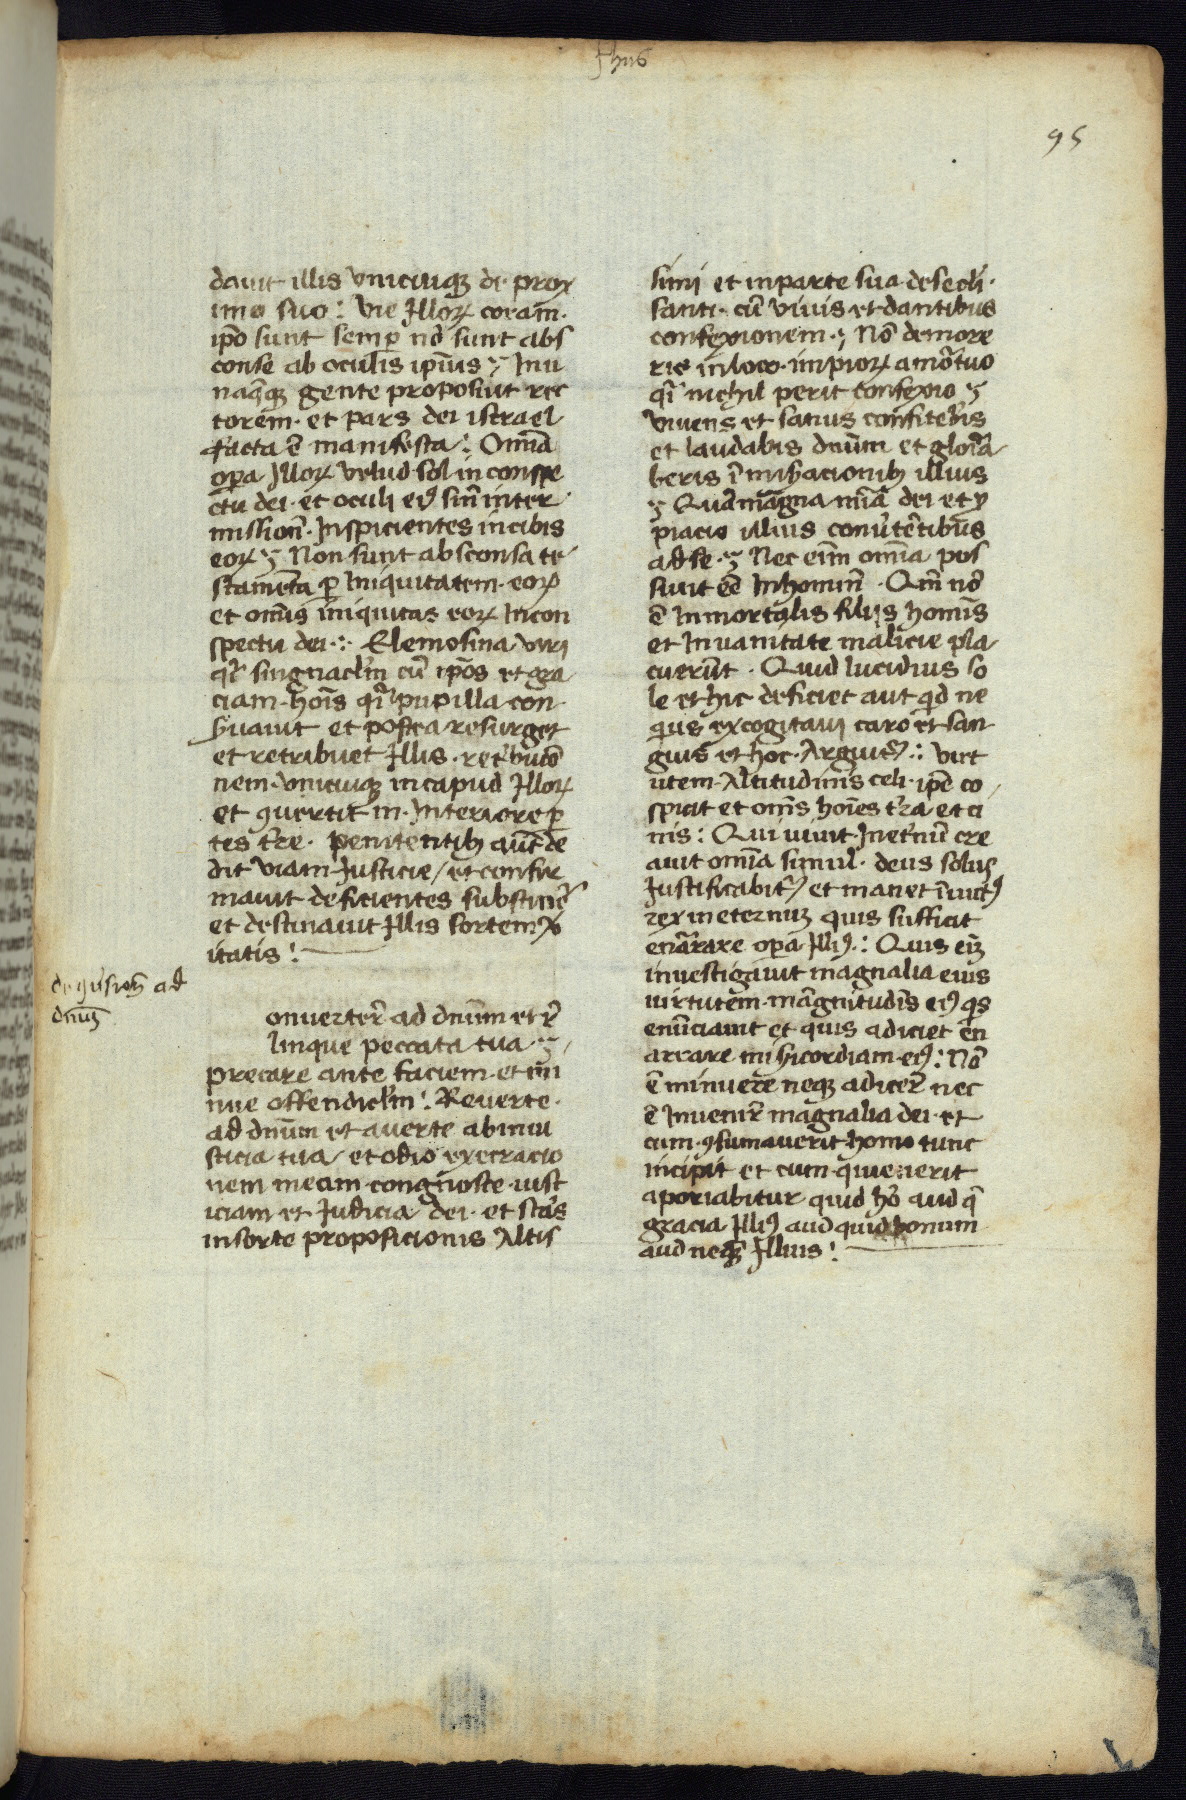 Jhus
95
dauit illis vnicuiqꝫ de prox
imo suo : Vie illoꝝ coram
ip̄o sunt semꝑ nō sunt abs
conse ab oculis ip̄ius ꝫ Inu
naq̄qꝫ gente proposiuit rec
torem · et pars dei iscrael
facta ē manifesta : Om̄ia
oꝑa illoꝝ velud sol in conspe
ctu dei · et oculi eiꝰ sin̄ inter
mission̄ · Inspicientes in cibis
eoꝝ ꝫ Non sunt absconsa te
stamēta ꝑ Iniquitatem · eoꝝ
et om̄is iniquitas eoꝝ In con
spectu dei ·:· Elemosina viri
q̄i singnacl̄m cū ip̄os et gra
ciam · hoīs q̄i pupilla con
ẜuauit et postea resurget
et retribuet illis · ret̄buco᷑
nem · vnicuiqꝫ in capud illoꝝ
et ꝯuertit in · Interiore ꝑ
tes t̄re · penitentibꝫ aūt de
dit viam Iusticie / et confir
mauit deficientes substiner̄
et destinauit illis sortem v̄
itatis :
de ꝯūsion̄ ad
dnūꝫ
onuerter̄ ad dn̄um et r̄e
linque peccata tua ꝫ
precare ante faciem · et mi
nue offendicl̄m : Reuerte ·
ad dn̄um et auerte ab iniu
sticia tua / et odio execracio
nem mecim congnosce · iust
iciam et Iudicia dei · et sta᷑s
in sorte proposicionis Altis
simi et in parte sua de secli ·
santi · cū viuis et dantibus
confexionem · ꝫ Nō demore
ris in loco · impioꝝ a mo᷑tuo
q̄i nichil perit confexio ꝫ
viuens et sanus confiteb̄is
et laudabis dn̄um et gloīa
beris ī mis̄acionibꝫ illius
ꝫ Quā mangna mīa dei et ꝓ
piacio illius conūtētibus
ad se · ꝫ Nec eīm om̄ia pos
sunt eē In homin̄ · Qm̄ nō
ē Inmortalis filijs hom̄is
et In vanitate malicie pla
cuerūt · Quid lucidius so
le et hic deficiet aut qid ne
quis excogitaui caro et san
guis et hoc · Arguit᷑ : virt
utem · Altitudinis celi · ip̄e co
spicit et om̄s hoīes t̄ra et ci
nis : Qui viuit · In et̄nū cre
auit om̄ia simul · deus solus
Iustificabit᷑ et manet īuictꝰ
rex in eternuꝫ quis sufficit
enarrare oꝑa illiꝰ : Quis eīꝫ
inuestigauit magnalia eius
virtutem · mangnitudīs eiꝰ qis
enūciauit et quis adiciet en
arrare misẜicordiam · eiꝰ : Nō
ē minuere neqꝫ adicer̄ nec
ē Inuenir̄ magnalia dei · et
cum · ꝯsumauerit homo tunc
incipit et cum quieuerit
aporiabitur quid hō aud q̄
gracia illiꝰ aud quid bonum
aud neqꝫ illius :